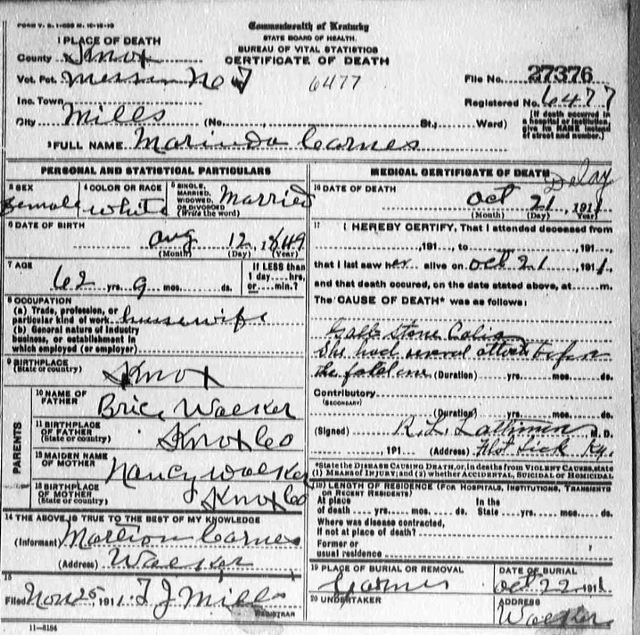 FORM V. S. 1-
Commonwealth of Kentucky
STATE BOARD OF HEALTH.
BUREAU OF VITAL STATISTICS
CERTIFICATE OF DEATH
1 PLACE OF DEATH
County Knox
Vot. Pct. No 7
6477
File No. 27376
Inc. Town
Registered No. 6477
City Mills (No. St.; Ward)
[If death occurred in a hospital or institution, give its NAME instead of street and number.]
2 FULL NAME Marinda Carnes
PERSONAL AND STATISTICAL PARTICULARS
MEDICAL CERTIFICATE OF DEATH
Delay
3 SEX Female
4 COLOR OR RACE White
5 SINGLE, MARRIED, WIDOWED, OR DIVORCED (Write the word) Married
6 DATE OF BIRTH
Aug 12, 1849
(Month) (Day) (Year)
7 AGE
62 yrs. 9 mos. ds.
If LESS than 1 day---hrs. or----min.?
8 OCCUPATION
(a) Trade, profession, or particular kind of work housewife
(b) General nature of industry business, or establishment in which employed (or employer)
9 BIRTHPLACE (State or country) Knox
PARENTS
10 NAME OF FATHER Brice Walker
11 BIRTHPLACE OF FATHER (State or country) Knox Co
12 MAIDEN NAME OF MOTHER Nancy Walker
13 BIRTHPLACE OF MOTHER (State or country) Knox Co
14 THE ABOVE IS TRUE TO THE BEST OF MY KNOWLEDGE
(Informant) Carnes
(Address) Walker
15
Filed Nov 25, 1911 T J Mills
REGISTRAR
11-3184
16 DATE OF DEATH
Oct 21, 1911
(Month) (Day) (Year)
17 I HEREBY CERTIFY, That I attended deceased from
,191 to ,191 ,
that I last saw her alive on Oct 21, 1911,
and that death occured, on the date stated above, at m.
The CAUSE OF DEATH* was as follows:
Gall Stone Colic
She had several attacks before
the fatal one (Duration) yrs. mos. ds.
Contributory
(SECONDARY)
(Duration) yrs. mos. ds.
(Signed) R. L. M. D.
,191 (Address) Flat Lick Ky.
*State the DISEASE CAUSING DEATH, or, in deaths from VIOLENT CAUSES, state (1) MEANS OF INJURY; and (2) whether ACCIDENTAL, SUICIDAL or HOMICIDAL
18 LENGTH OF RESIDENCE (FOR HOSPITALS, INSTITUTIONS, TRANSIENTS OR RECENT RESIDENTS)
At place of death yrs. mos. ds.
In the State yrs. mos. ds.
Where was disease contracted, if not at place of death?
Former or usual residence
19 PLACE OF BURIAL OR REMOVAL
Carnes
DATE OF BURIAL
Oct 22 1911
20 UNDERTAKER
ADDRESS
Walker